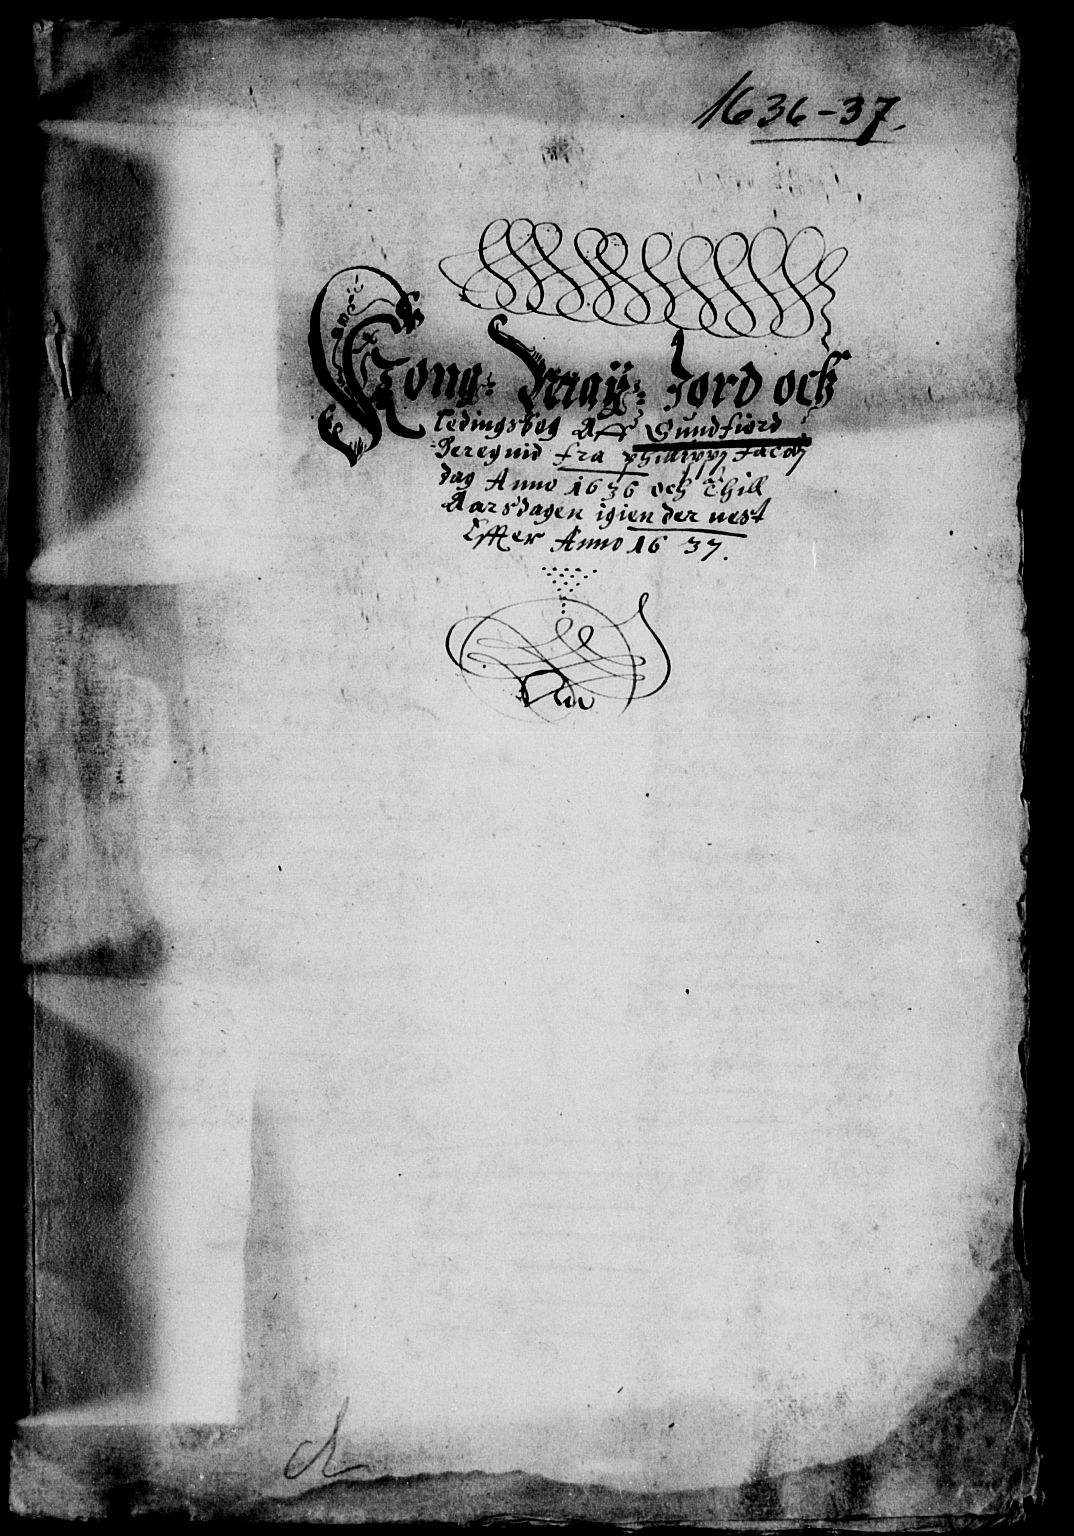 1636-37.
Kong: May: Jord och
ledingsbog Aff Sundfiord
Beregnid fra Philippj Jacobj
dag Anno 1636 och Thill
Aarsdagen igien der nest
Effter Anno 1637.